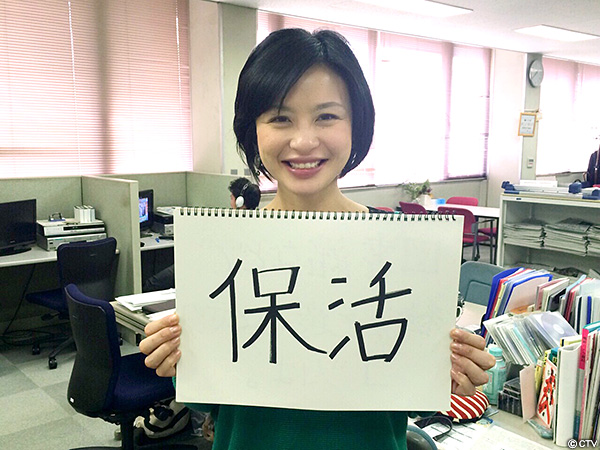 保活
© CTV